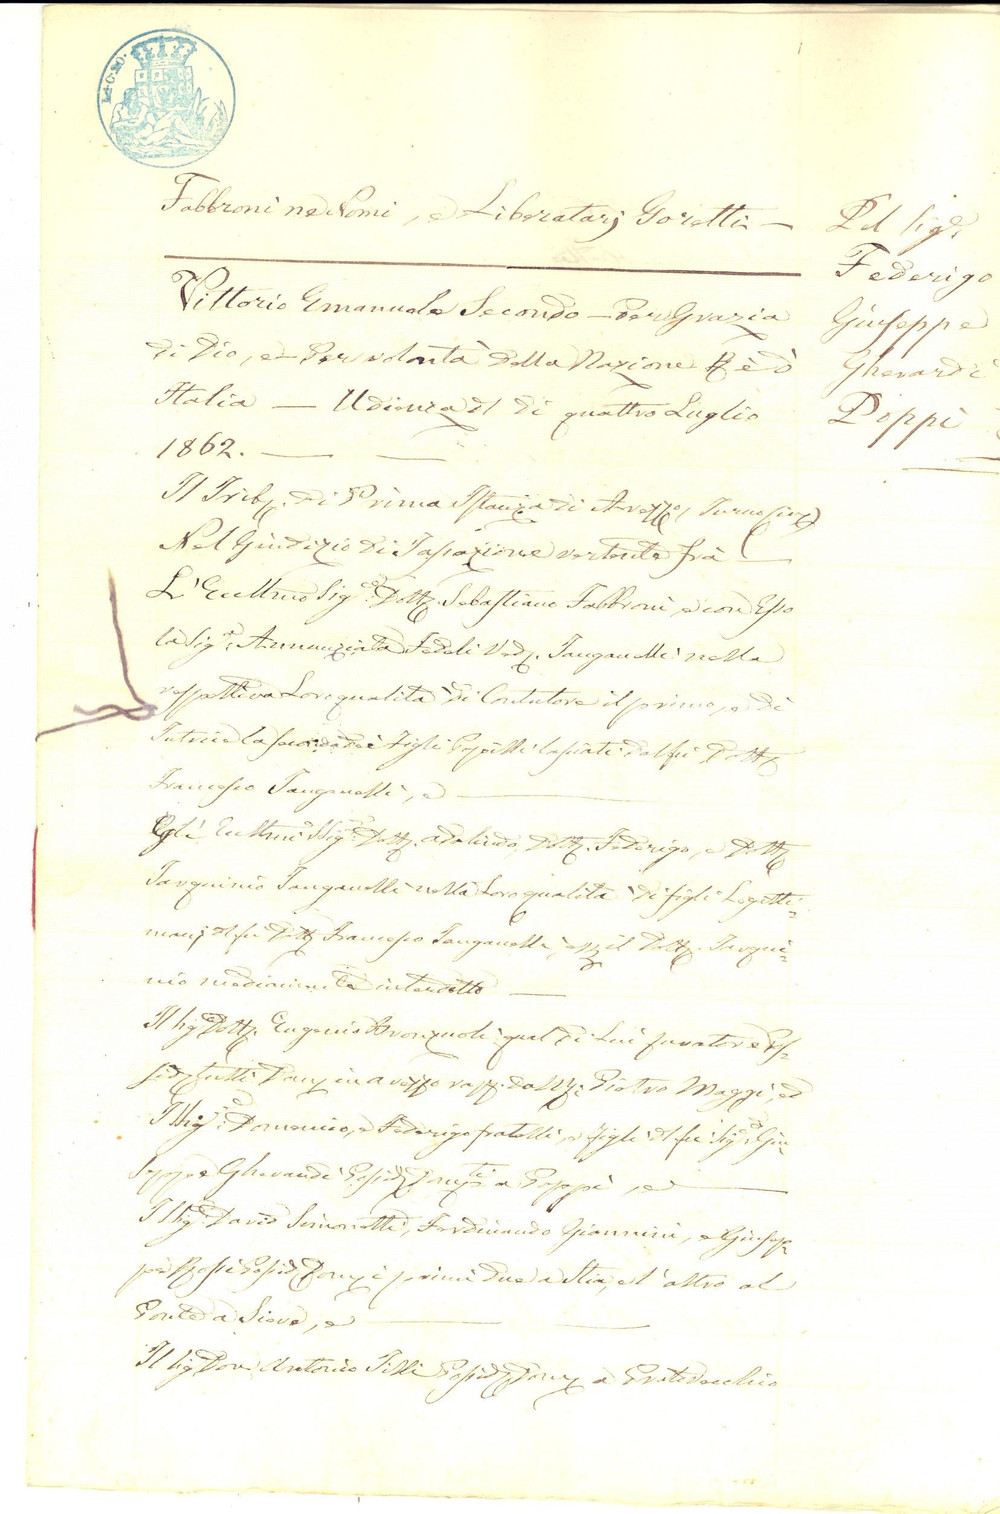 L. C. 20.
Fabbroni ne' Nomi, e Liberatarj Goretti —
Vittorio Emanuele Secondo — Per Grazia
di Dio, e Per volontà della Nazione Re d'
Italia — Udienza del dì quattro Luglio
1862. —
Il Tribe. di Prima Istanza di Arezzo, Turno Civile
Nel Giudizio di Tassazione vertente frà
L'Eccellmo Sigre. Dottr. Sebastiano Fabbroni, e con Esso
la Sigra. Annunziata Fedeli Veda. Tanganelli nella
respettiva Loro qualità di Contutore il primo, e di
Tutrice la seconda dei Figli Pupilli lasciati dal fu Dottr.
Francesco Tanganelli, e —
Gli Eccellmi Sigri. Dottr. Adolindo, Dottr. Federigo, e Dottr.
Tarquinio Tanganelli nella Loro qualità di figli Legitti-
marj del fu Dottr. Francesco Tanganelli, il Dottr. Tarqui-
nio interdetto —
Il Sig. Dottr. Eugenio Bronzuoli qual di Lui Curatore Pos-
sidti. tutti Domti. in Arezzo rapp. da Mr. Pietro Maggi, ed
I Sigri. Domenico, e Federigo fratelli, e figli del fu Sigre. Giu-
seppe Gherardi Possidti. Domti. a Poppi, e —
I Sigri. David Simonetti, Ferdinando Giannini, e Giusep-
pe Rossi Possidti. Domti. i primi due a Stia, e l'altro al
Ponte a Sieve, e —
Il Sig. Don Antonio Tilli Possidte. Domto. a Pratovecchio
Pel Sigre.
Federigo
Giuseppe
Gherardi
Poppi